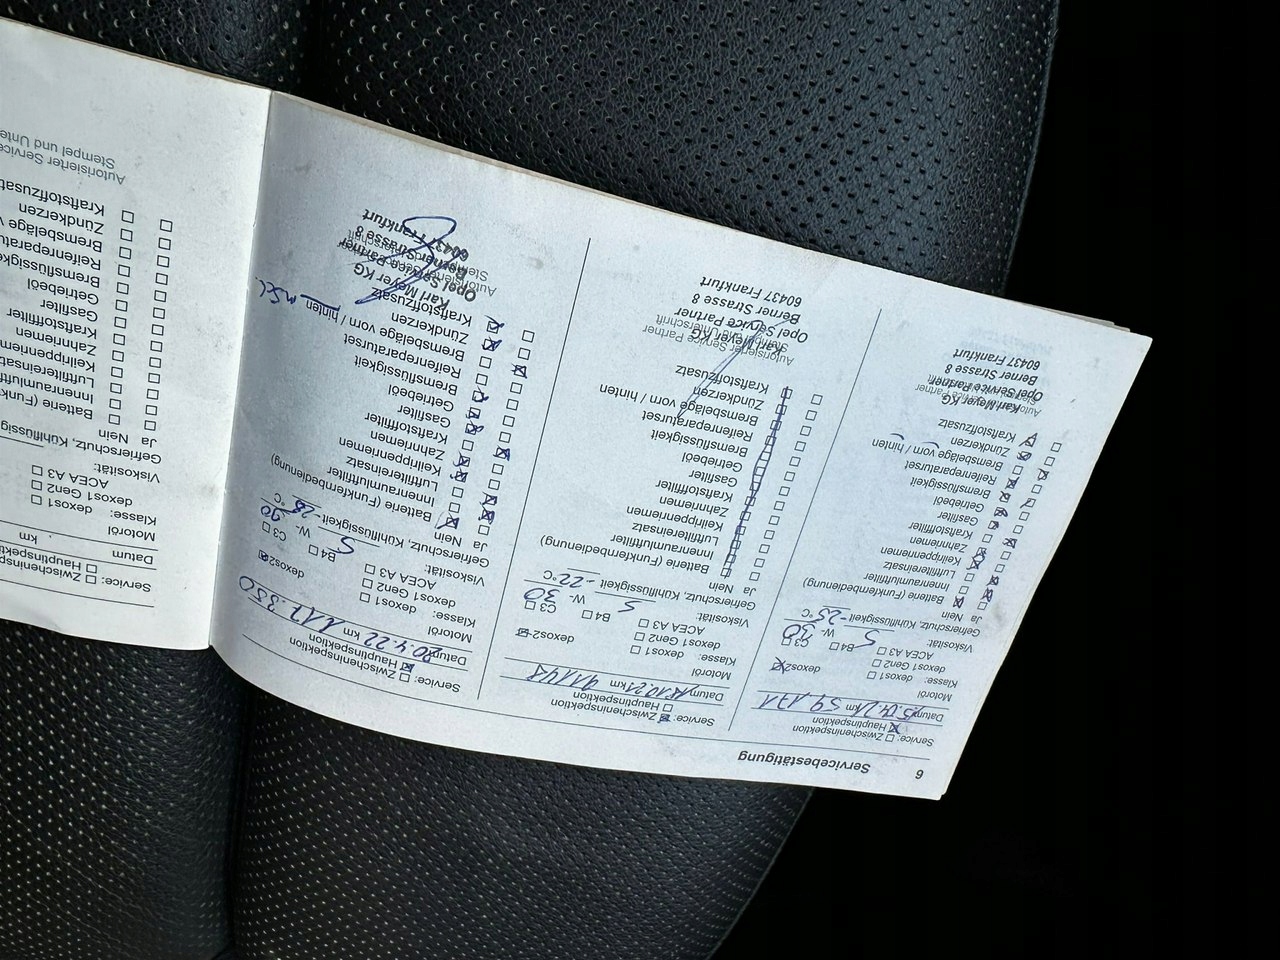 6
Servicebestätigung
Service: Zwischeninspektion
Hauptinspektion
Datum 15.04.21 km 59.171
Motoröl
Klasse: dexos1 dexos2
dexos1 Gen2
ACEA A3 B4 C3
Viskosität: 5 W- 30
Gefrierschutz, Kühlflüssigkeit -25 °C
Ja Nein
Batterie (Funkfernbedienung)
Innenraumluftfilter
Luftfiltereinsatz
Keilrippenriemen
Zahnriemen
Kraftstofffilter
Gasfilter
Getriebeöl
Bremsflüssigkeit
Reifenreparaturset
Bremsbeläge vorn / hinten
Zündkerzen
Kraftstoffzusatz
Karl Meyer KG
Opel Service Partner
Berner Strasse 8
60437 Frankfurt
Service: Zwischeninspektion
Hauptinspektion
Datum 10.21 km
Motoröl
Klasse: dexos1 dexos2
dexos1 Gen2
ACEA A3 B4 C3
Viskosität: 5 W- 30
Gefrierschutz, Kühlflüssigkeit -22 °C
Ja Nein
Batterie (Funkfernbedienung)
Innenraumluftfilter
Luftfiltereinsatz
Keilrippenriemen
Zahnriemen
Kraftstofffilter
Gasfilter
Getriebeöl
Bremsflüssigkeit
Reifenreparaturset
Bremsbeläge vorn / hinten
Zündkerzen
Kraftstoffzusatz
Autorisierter Service Partner
Stempel und Unterschrift
Karl Meyer KG
Opel Service Partner
Berner Strasse 8
60437 Frankfurt
Service: Zwischeninspektion
Hauptinspektion
Datum 20.4.22 km 117.350
Motoröl
Klasse: dexos1 dexos2
dexos1 Gen2
ACEA A3 B4 C3
Viskosität: 5 W- 30
Gefrierschutz, Kühlflüssigkeit -28 °C
Ja Nein
Batterie (Funkfernbedienung)
Innenraumluftfilter
Luftfiltereinsatz
Keilrippenriemen
Zahnriemen
Kraftstofffilter
Gasfilter
Getriebeöl
Bremsflüssigkeit
Reifenreparaturset
Bremsbeläge vorn / hinten
Zündkerzen
Kraftstoffzusatz
Karl Meyer KG
Opel Service Partner
Berner Strasse 8
60437 Frankfurt
Service: Zwischeninspekti
Hauptinspekti
Datum km
Motoröl
Klasse: dexos1
dexos1 Gen2
ACEA A3
Viskosität:
Gefrierschutz, Kühlflüssig
Ja Nein
Batterie (Funk
Innenraumluft
Luftfiltereinsat
Keilrippenrie
Zahnriemen
Kraftstofffilter
Gasfilter
Getriebeöl
Bremsflüssigke
Reifenreparatu
Bremsbeläge v
Zündkerzen
Kraftstoffzusat
Autorisierter Service
Stempel und Unte